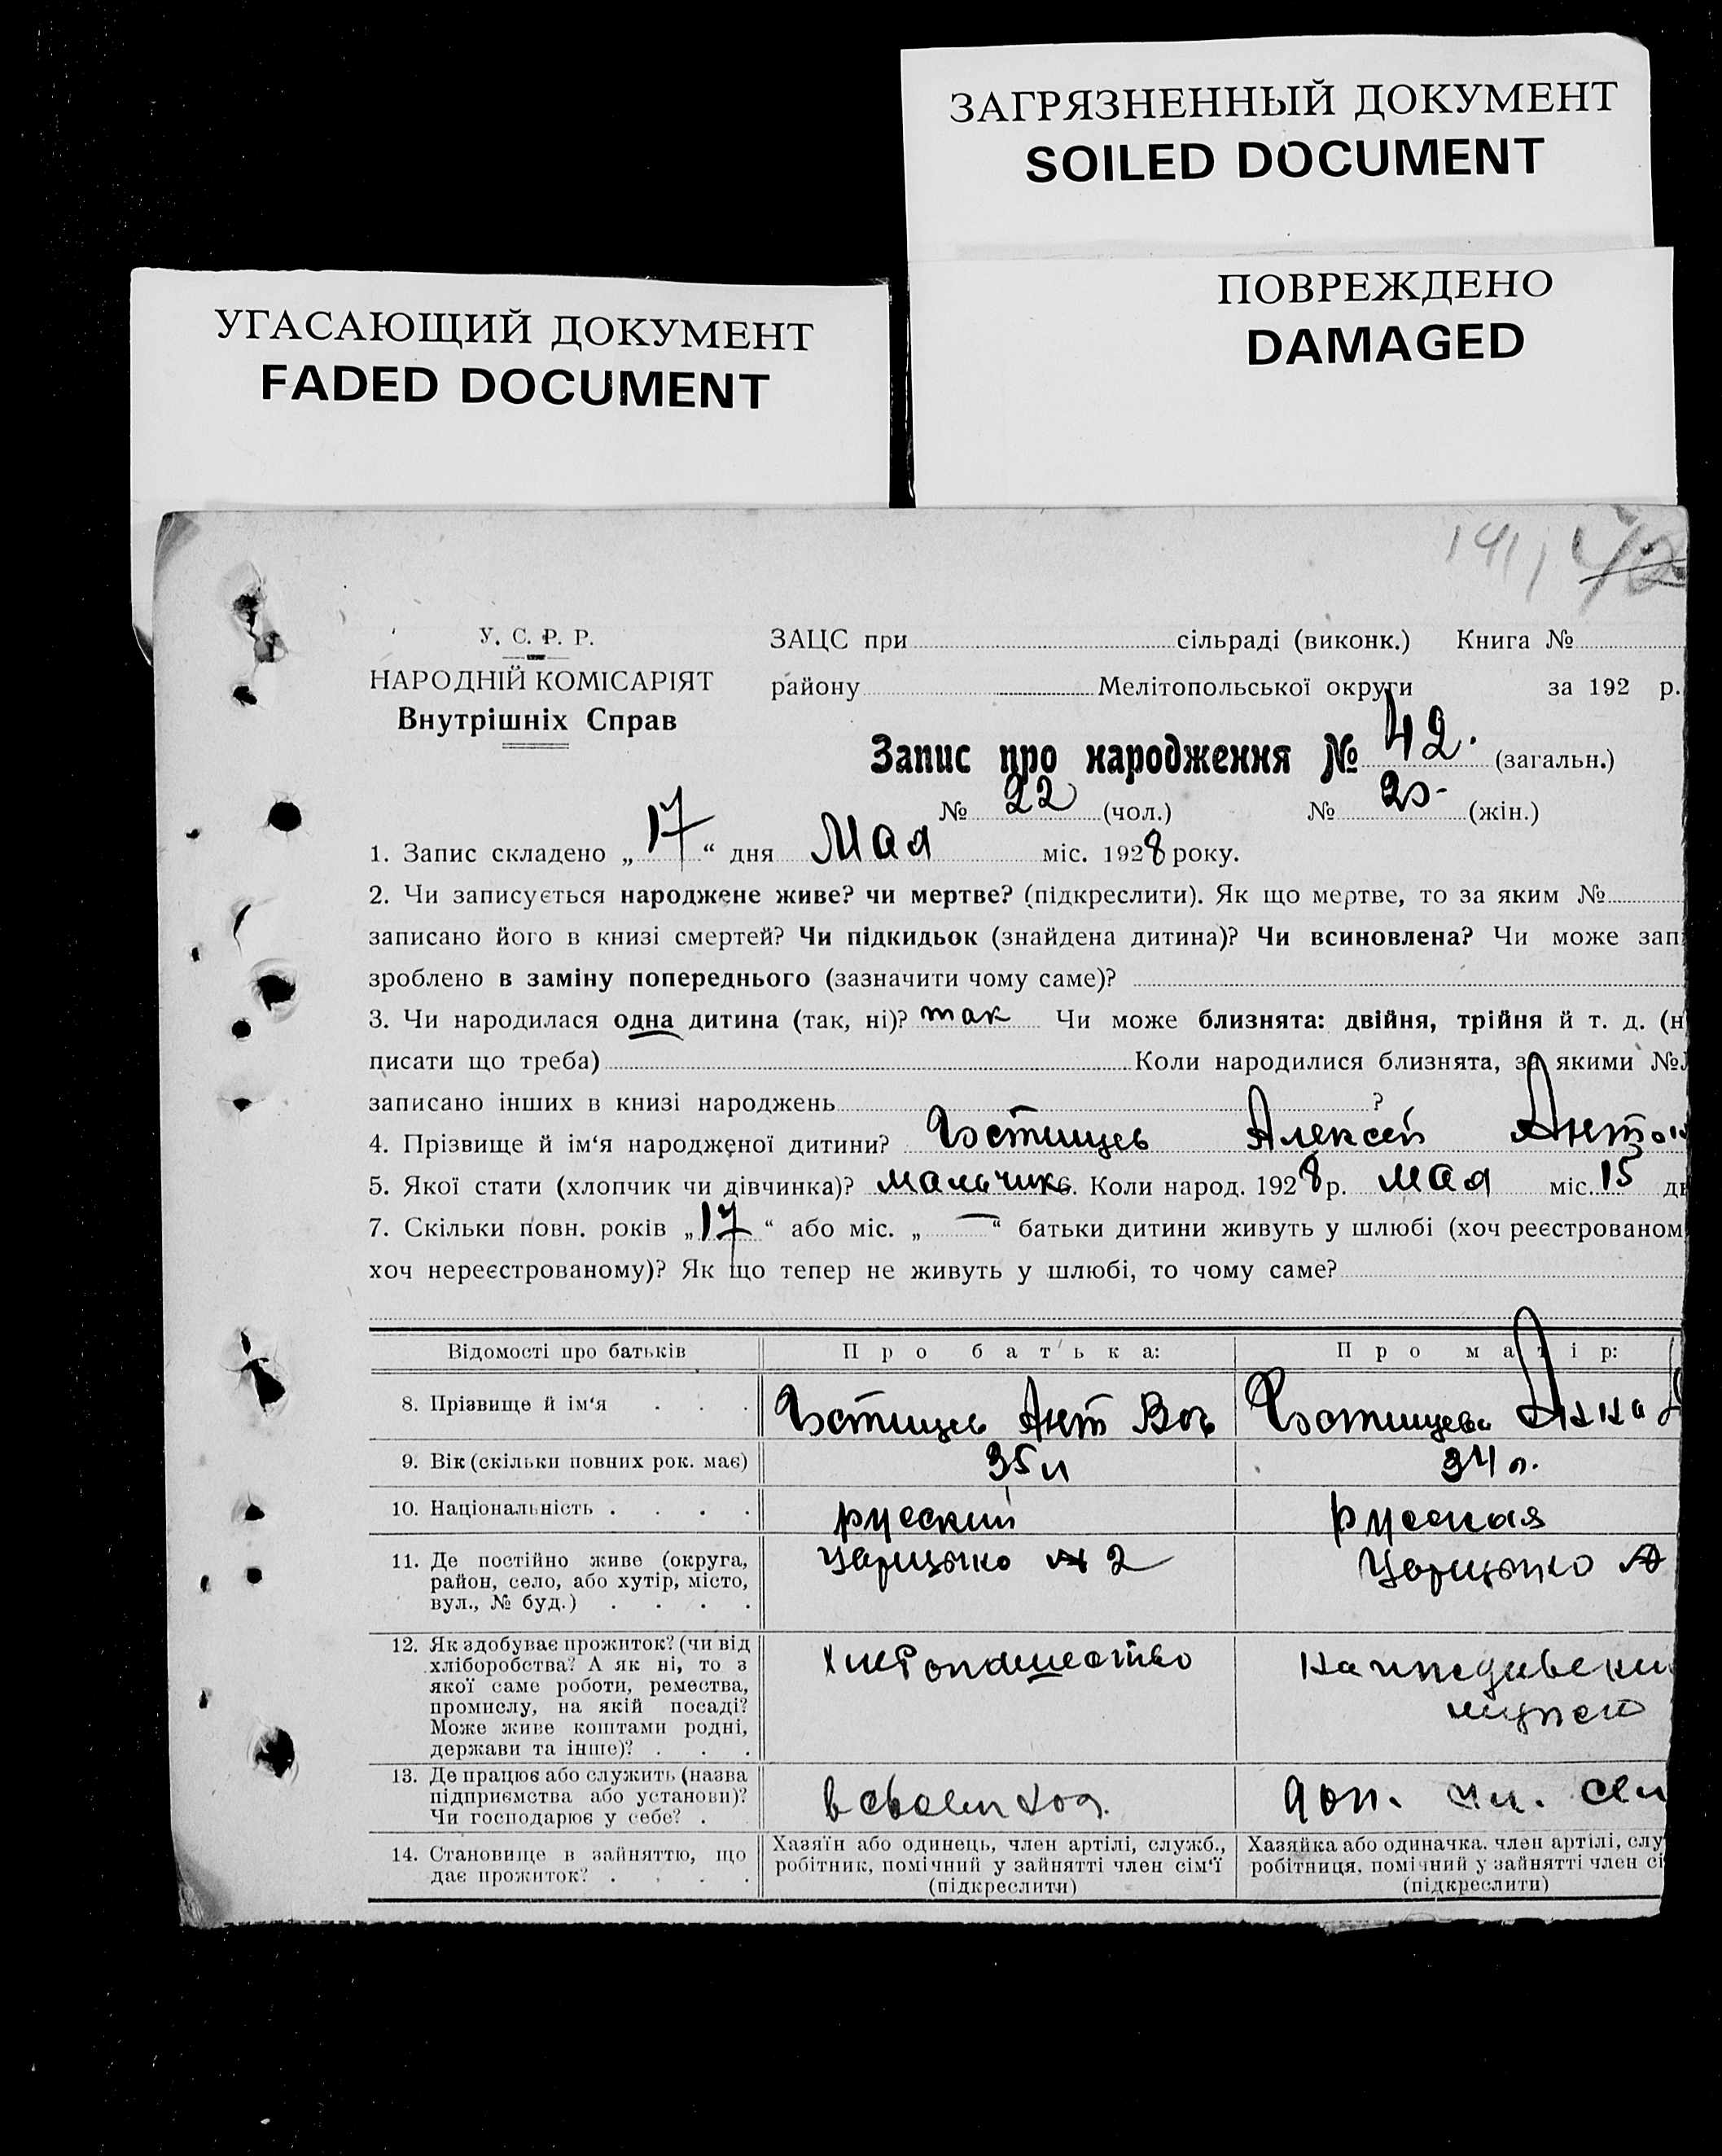 ЗАГРЯЗНЕННЫЙ ДОКУМЕНТ
SOILED DOCUMENT
ПОВРЕЖДЕНО
DAMAGED
УГАСАЮЩИЙ ДОКУМЕНТ
FADED DOCUMENT
191, 42
У. С. Р. Р.
НАРОДНІЙ КОМІСАРІЯТ
Внутрішніх Справ
ЗАЦС при сільраді (виконк.) Книга №
району Мелітопольської округи за 192 р.
Запис про народження № 42. (загальн.)
№ 22 (чол.) № 20 (жін.)
1. Запис складено „17“ дня Мая міс. 1928 року.
2. Чи записується народжене живе? чи мертве? (підкреслити). Як що мертве, то за яким №
записано його в книзі смертей? Чи підкидьок (знайдена дитина)? Чи всиновлена? Чи може зап
зроблено в заміну попереднього (зазначити чому саме)?
3. Чи народилася одна дитина (так, ні)? так Чи може близнята: двійня, трійня й т. д. (н
писати що треба) Коли народилися близнята, за якими №
записано інших в книзі народжень ?
4. Прізвище й ім‘я народженої дитини? Алексей Антон
5. Якої стати (хлопчик чи дівчинка)? мальчик 6. Коли народ. 1928 р. мая міс. 15 дн
7. Скільки повн. років „17“ або міс. „—“ батьки дитини живуть у шлюбі (хоч реєстрованом
хоч нереєстрованому)? Як що тепер не живуть у шлюбі, то чому саме?
Відомості про батьків Про батька: Про матір:
8. Прізвище й ім‘я Ант Анна
9. Вік (скільки повних рок. має) 35 л 34 л.
10. Національність русский русская
11. Де постійно живе (округа,
район, село, або хутір, місто,
вул., № буд.)
№ 2
12. Як здобуває прожиток? (чи від
хліборобства? А як ні, то з
якої саме роботи, ремества,
промислу, на якій посаді?
Може живе коштами родні,
держави та інше)?
13. Де працює або служить (назва
підприємства або установи)?
Чи господарює у себе?
в своем хоз. доп. чл. сем
14. Становище в зайняттю, що
дає прожиток?
Хазяїн або одинець, член артілі, служб.,
робітник, помічний у зайнятті член сім‘ї
(підкреслити)
Хазяйка або одиначка. член артілі, слу
робітниця, помічний у зайнятті член сі
(підкреслити)